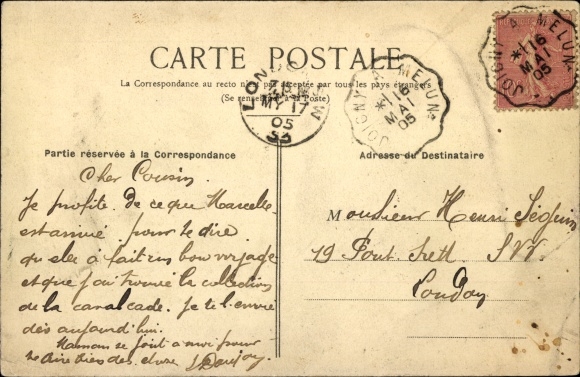 CARTE POSTALE
La Correspondance au recto n'est pas acceptée par tous les pays étrangers
(Se renseigner à la Poste)
LONDON S.W
MY 17
05
JOIGNY A MELUN
*1 16
MAI
05
JOIGNY A MELUN
*1 16
MAI
05
Partie réservée à la Correspondance
Cher Cousin.
Je profite de ce que Marcelle
est arrivé pour te dire
qu'elle a fait un bon voyage
et que j'ai trouvé la collection
de la cavalcade. Je te l'envoie
dès aujourd'hui.
Maman se joint a moi pour
te dire bien des
Adresse du Destinataire
Monsieur Henri Séguin
19 Pont Strett S.W.
London